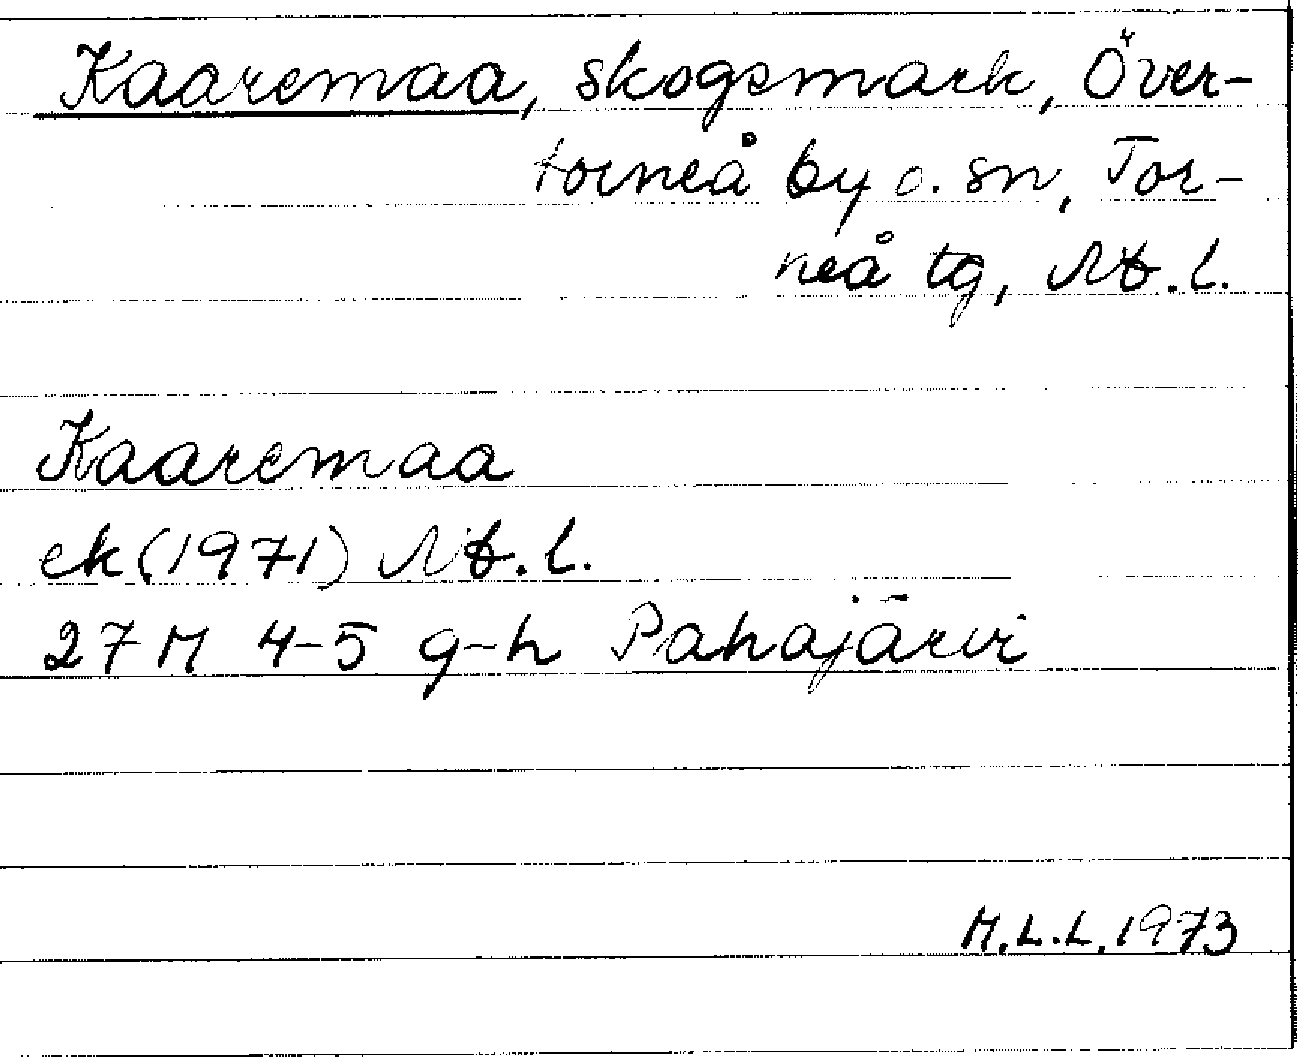 Kaaremaa, skogsmark, Över-
torneå by o. sn, Tor-
neå tg, Nb.l.
Kaaremaa
ek (1971) Nb.l.
27 M 4-5 g-h Pahajärvi
M.L.L. 1973